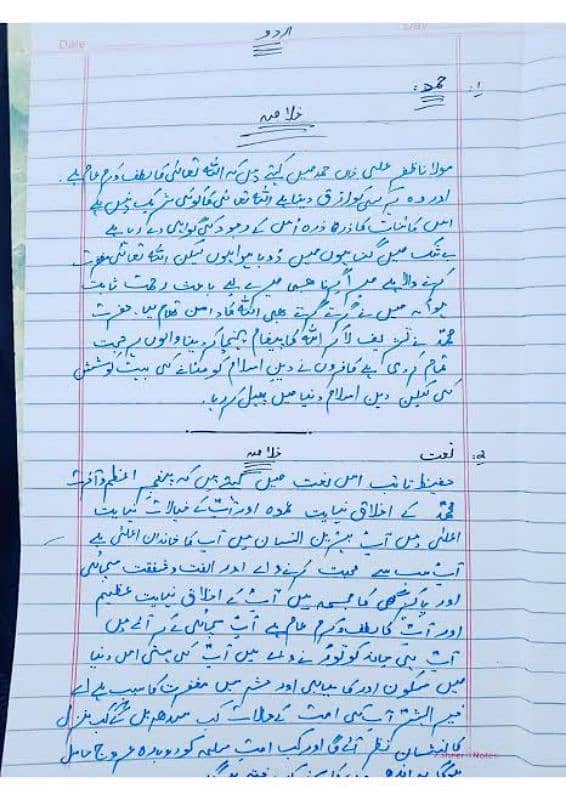 Date
Day
اردو
۱: حمد:
خلاصہ
مولانا ظفر علی خاں حمد میں کہتے ہیں کہ اللہ تعالیٰ کا لطف و کرم عام ہے۔
اور وہ ہر کسی کو رزق دیتا ہے اللہ تعالیٰ کا کوئی شریک نہیں ہے
اس کائنات کا ذرہ ذرہ اس کے وجود کی گواہی دے رہا ہے
بے شک میں گناہوں میں ڈوبا ہوا ہوں لیکن اللہ تعالیٰ مغفرت
کرنے والا ہے میرا گرنا بھی میرے لیے باعث رحمت ثابت
ہوا کہ میں نے گرتے گرتے بھی اللہ کا دامن تھام لیا۔ حضرت
محمدؐ نے تشریف لا کر اللہ کا پیغام پہنچا کر دنیا والوں پر حجت
تمام کر دی ہے کافروں نے دین اسلام کو مٹانے کی بہت کوشش
کی لیکن دین اسلام دنیا میں پھیل کر رہا۔
۲: نعت
خلاصہ
حفیظ تائب اس نعت میں کہتے ہیں کہ پیغمبر اعظم و آخرت
محمدؐ کے اخلاق نہایت عمدہ اور آپؐ کے خیالات نہایت
اعلیٰ ہیں آپؐ بہترین انسان ہیں آپ کا خاندان اعلیٰ ہے
آپؐ سب سے محبت کرنے والے اور الفت و شفقت سچائی
اور پاکیزگی کا مجسمہ ہیں آپؐ کے اخلاق نہایت عظیم
اور آپؐ کا لطف و کرم عام ہے آپؐ سچائی کے
آپؐ ہی چاند کو توڑنے والے ہیں آپؐ کی ہستی اس دنیا
میں سکون اور کامیابی اور حشر میں مغفرت کا سبب ہے اے
خیر البشرؐ آپ کی امت کے حالات کب سدھریں گے کب منزل
کا نشان نظر آئے گا اور کب امت مسلمہ کو دوبارہ عروج حاصل
ہوگا